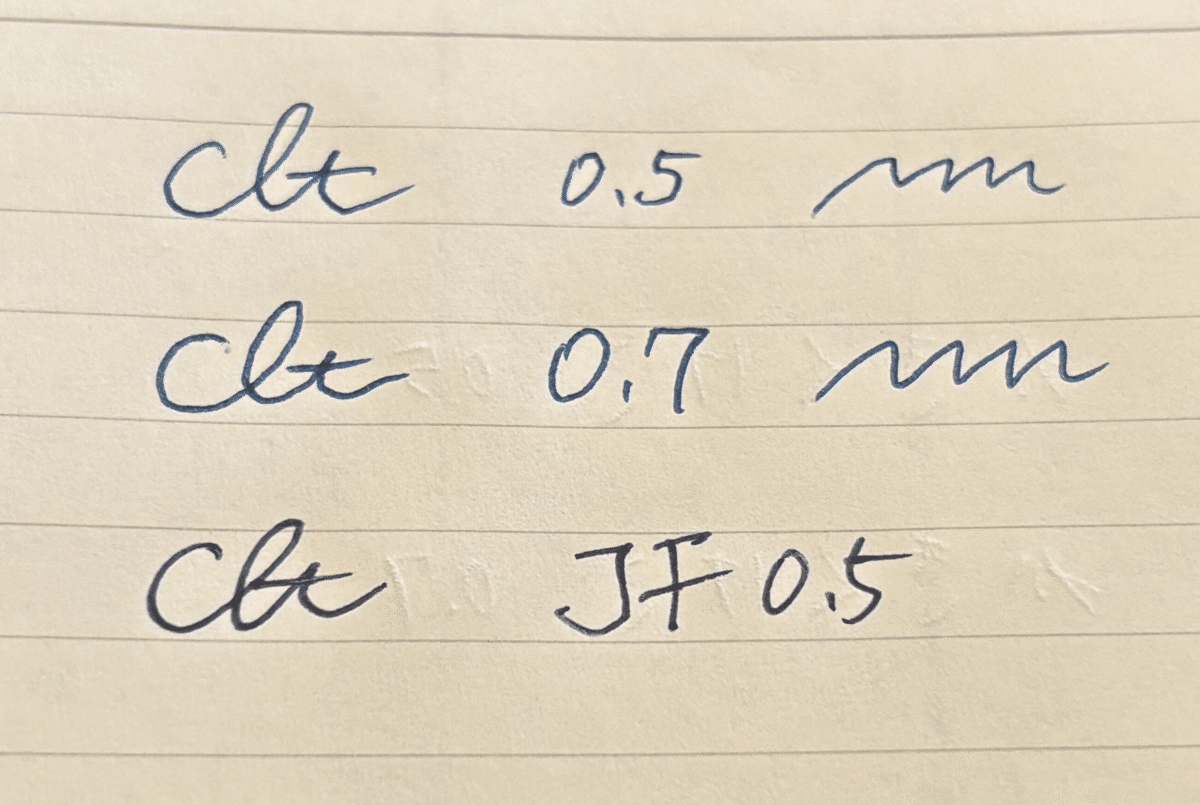 Clt 0.5
Clt 0.7
Clt JF 0.5